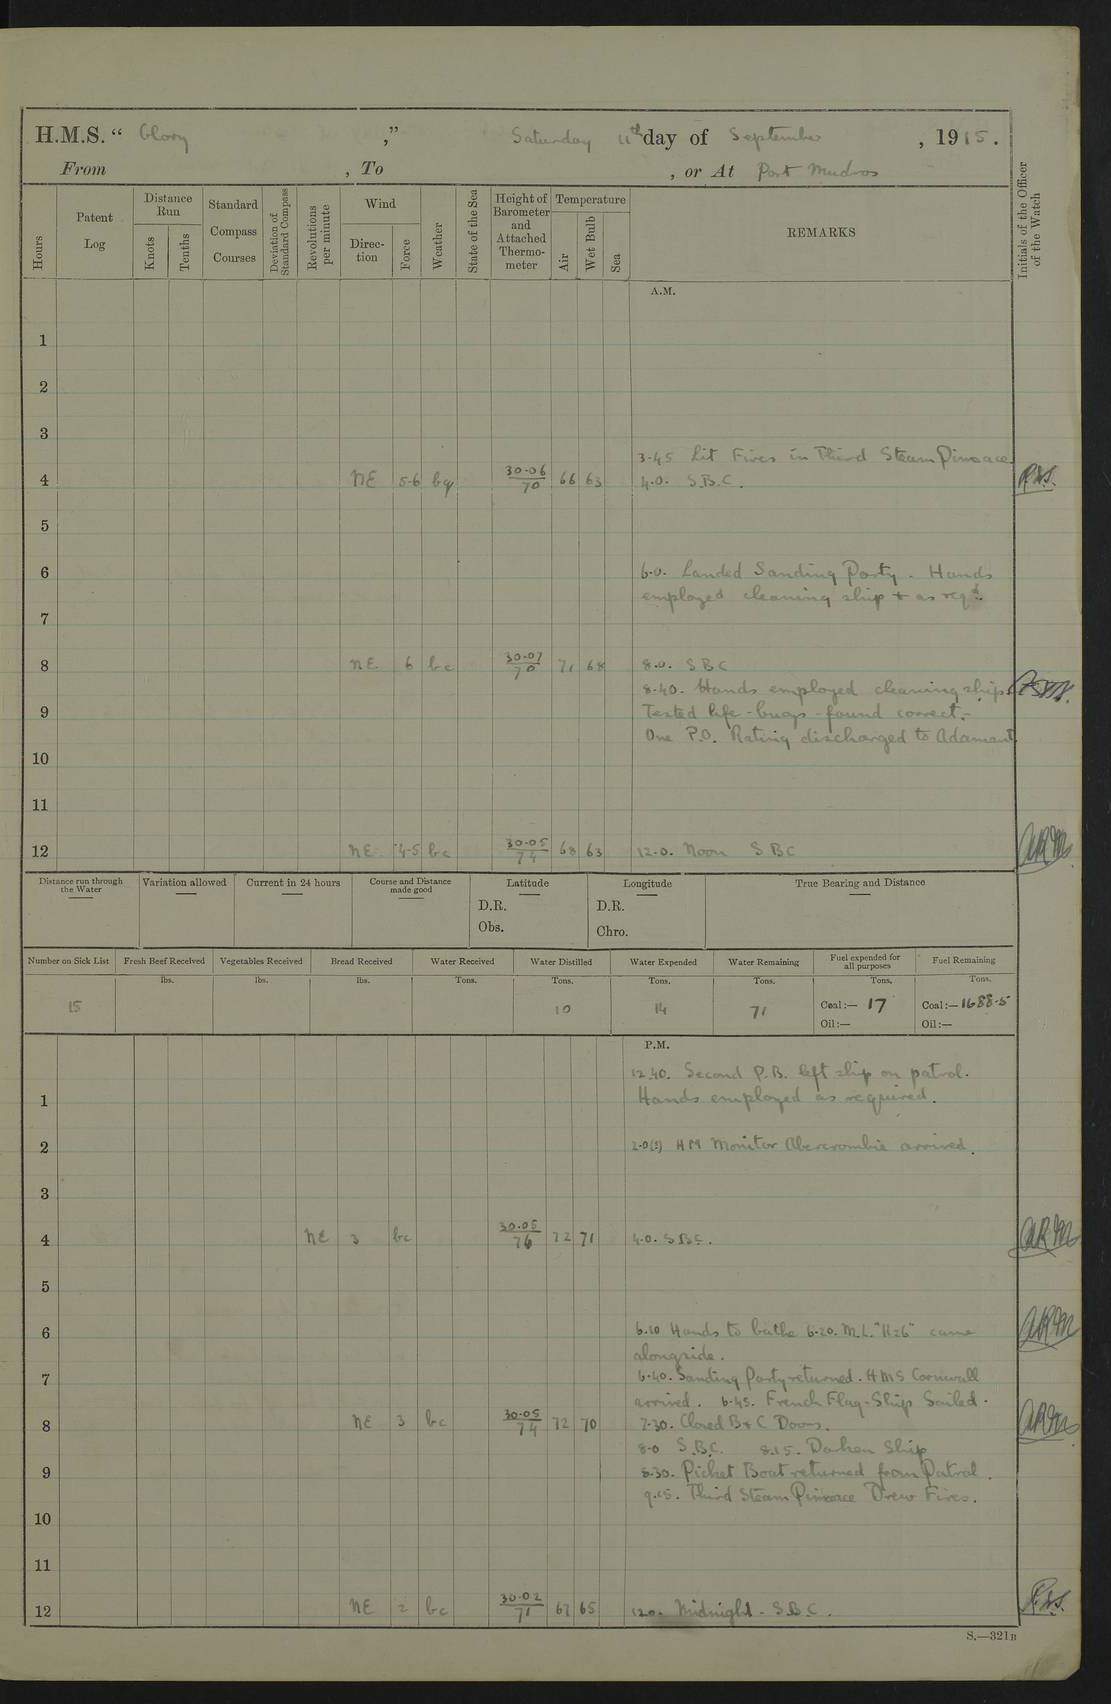 H.M.S. “ Glory ,” Saturday 11th day of September , 1915.
From , To , or At Port Mudros
Hours
Patent Log
Distance Run
Knots
Tenths
Standard Compass Courses
Deviation of Standard Compass
Revolutions per minute
Wind
Direc-tion
Force
Weather
State of the Sea
Height of Barometer and Attached Thermo-meter
Temperature
Air
Wet Bulb
Sea
REMARKS
Initials of the Officer of the Watch
A.M.
1
2
3
3-45 Lit Fires in Third Steam Pinnace
4 NE 5-6 bq 30-06/70 66 63 4.0. S.B.C.
5
6 6-0. Landed Sanding Party. Hands
employed cleaning ship + as reqd.
7
8 NE 6 bc 30-07/70 71 68 8.0. SBC
8-40. Hands employed cleaning ship.
9 Tested life-buoys - found correct.-
One P.O. Rating discharged to Adamant
10
11
12 NE 4-5 bc 30-05/74 68 63 12-0. Noon SBC
Distance run through the Water
Variation allowed
Current in 24 hours
Course and Distance made good
Latitude
D.R.
Obs.
Longitude
D.R.
Chro.
True Bearing and Distance
Number on Sick List
Fresh Beef Received
Vegetables Received
Bread Received
Water Received
Water Distilled
Water Expended
Water Remaining
Fuel expended for all purposes
Fuel Remaining
lbs. lbs. lbs. Tons. Tons. Tons. Tons. Tons. Tons.
15 10 14 71 Coal:— 17 Coal:— 1688-5
Oil:— Oil:—
P.M.
12.40. Second P.B. left ship on patrol.
1 Hands employed as required.
2 2-0(?) HM Monitor Abercrombie arrived.
3
4 NE 3 bc 30-05/76 72 71 4.0. SBC.
5
6 6.10 Hands to bathe 6-20. M.L. "1126" came
alongside.
7 6-40. Sanding Party returned. HMS Cornwall
arrived. 6-45. French Flag-Ship Sailed.
8 NE 3 bc 30-05/74 72 70 7-30. Closed B+C Doors.
8-0 S.B.C. 8.15. Darken Ship
9 8.30. Picket Boat returned from Patrol.
9.15. Third Steam Pinnace Drew Fires.
10
11
12 NE 2 bc 30-02/71 67 65 12.0. Midnight - S.B.C.
S.—321B